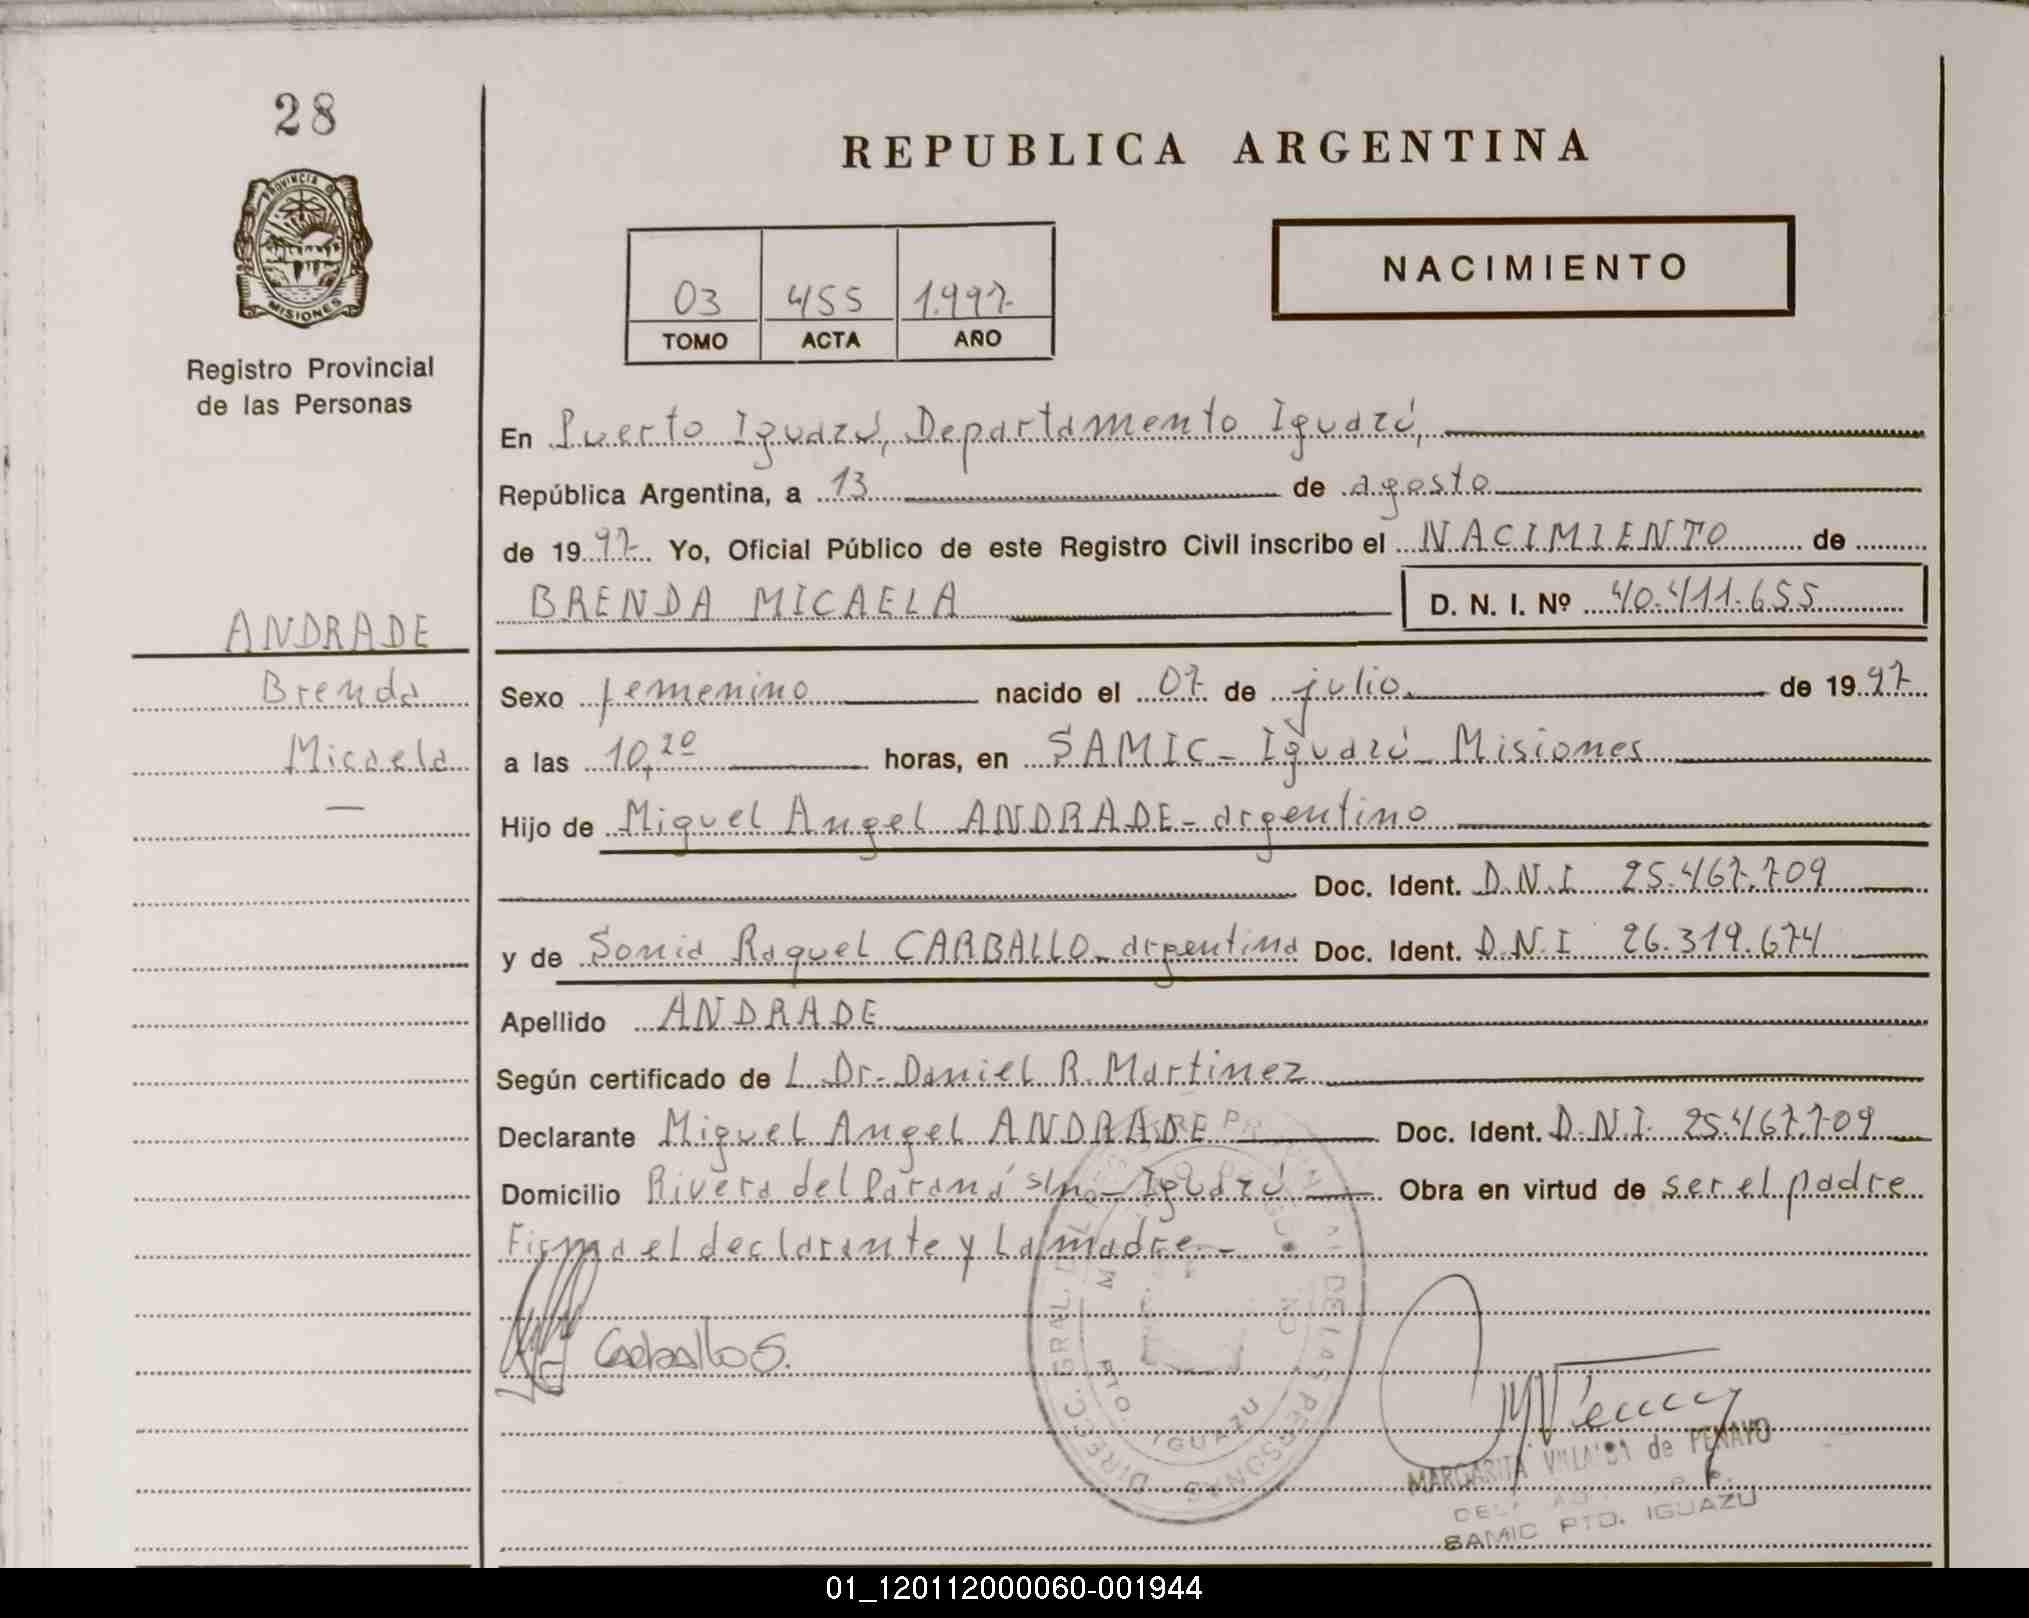 28
PROVINCIA DE
MISIONES
Registro Provincial
de las Personas
REPUBLICA ARGENTINA
NACIMIENTO
03 455 1.997
TOMO ACTA AÑO
En Puerto Iguazú, Departamento Iguazú,
República Argentina, a 13 de agosto
de 1997 Yo, Oficial Público de este Registro Civil inscribo el NACIMIENTO de
BRENDA MICAELA D. N. I. Nº 40.411.655
ANDRADE
Brenda
Micaela
Sexo femenino nacido el 07 de julio de 1997
a las 10,20 horas, en SAMIC - Iguazú - Misiones
Hijo de Miguel Angel ANDRADE - argentino
Doc. Ident. D.N.I 25.467.709
y de Sonia Raquel CARBALLO - argentina Doc. Ident. D.N.I 26.319.674
Apellido ANDRADE
Según certificado de L Dr. Daniel R. Martinez
Declarante Miguel Angel ANDRADE Doc. Ident. D.N.I. 25.467.709
Domicilio Rivera del Paraná s/no - Iguazú Obra en virtud de ser el padre
Firma el declarante y la madre.-
Carballo S.
DIRECC. GRAL. DEL PROVINCIAL DE LAS PERSONAS
PTO. IGUAZU
MARGARITA VILLALBA de PENAYO
SAMIC PTO. IGUAZU
01_120112000060-001944